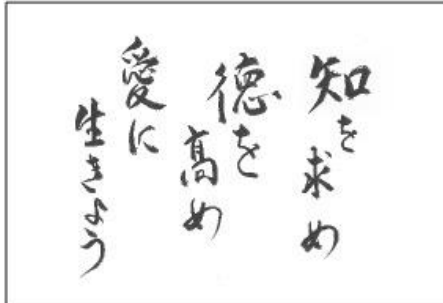 知を求め
徳を高め
愛に
生きよう